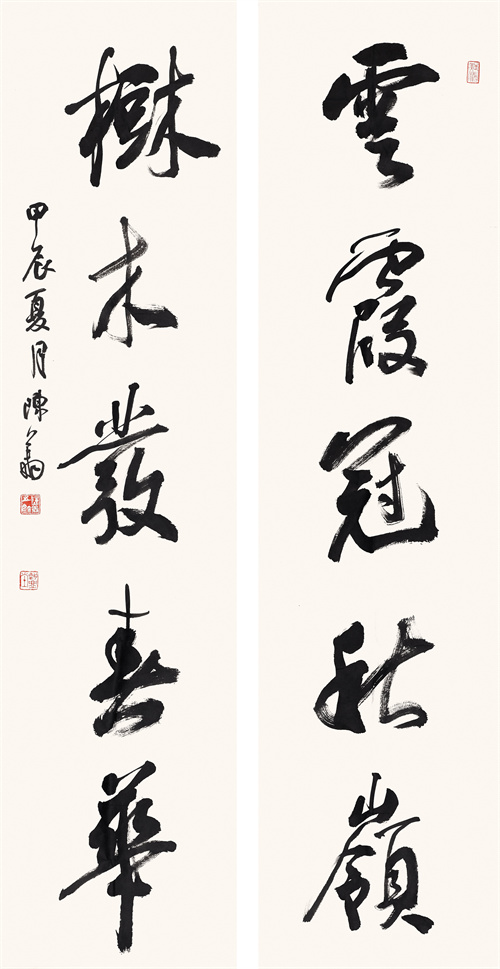 雲霞冠秋嶺
樹木發春華
甲辰夏月陳